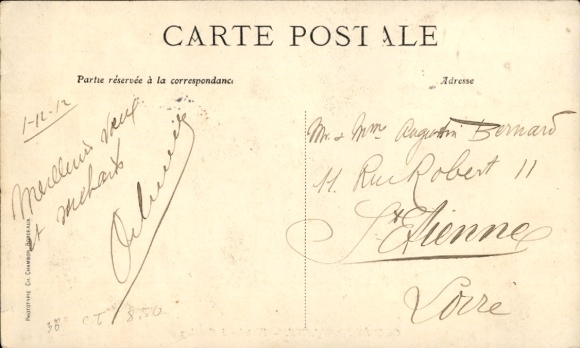 CARTE POSTALE
Partie réservée à la correspondance
Adresse
1-12-12
Meilleurs vœux
et souhaits
Mr. & Mme Augustin Bernard
11 Rue Robert 11
St Etienne
Loire
PHOTOTYPIE CH. CHAMBON, BORDEAUX
38 CT 8.50